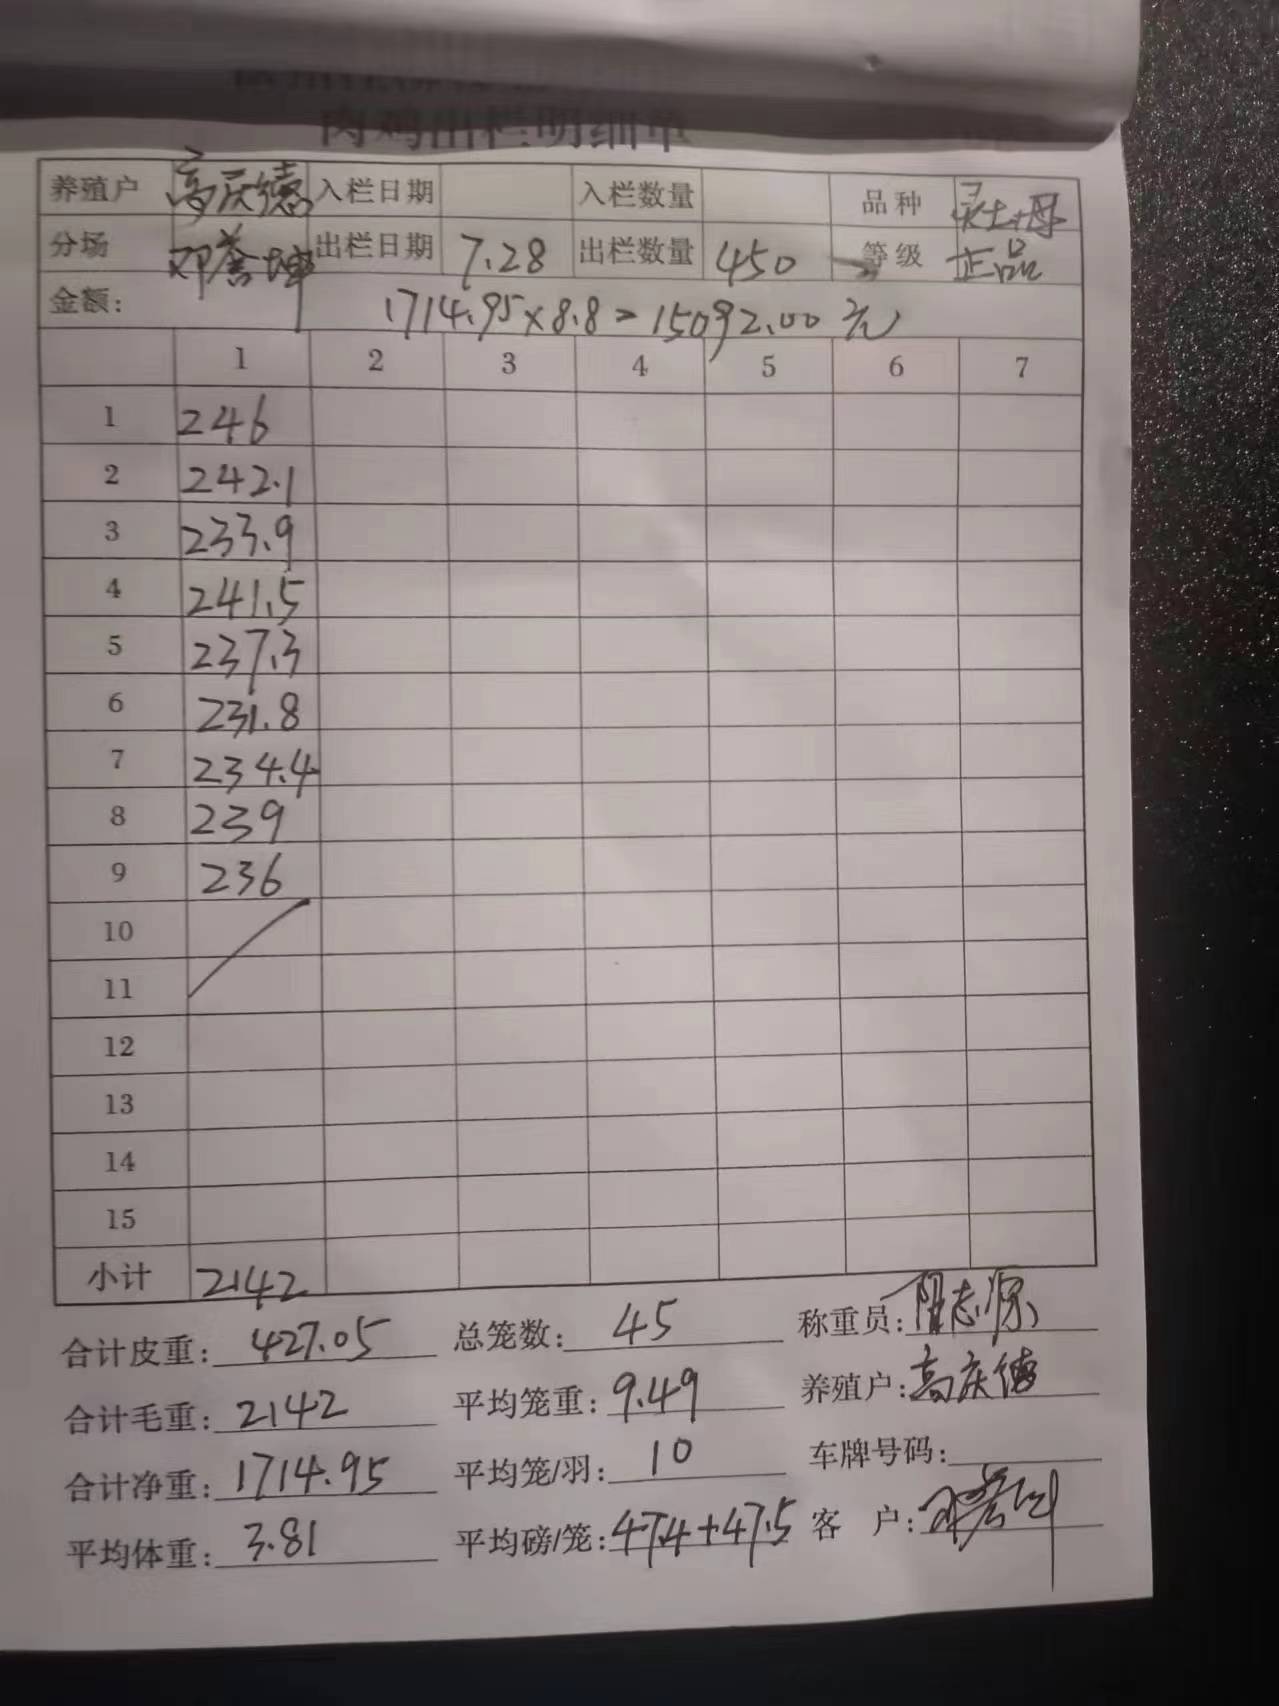 肉鸡出栏明细单
养殖户 高庆德 入栏日期 入栏数量 品种
分场 邓誉坤 出栏日期 7.28 出栏数量 450 等级 正品
金额: 1714.95×8.8=15092.00元
1 2 3 4 5 6 7
1 246
2 242.1
3 233.9
4 241.5
5 237.3
6 231.8
7 234.4
8 239
9 236
10
11
12
13
14
15
小计 2142
合计皮重: 427.05 总笼数: 45 称重员: 志源
合计毛重: 2142 平均笼重: 9.49 养殖户: 高庆德
合计净重: 1714.95 平均笼/羽: 10 车牌号码:
平均体重: 3.81 平均磅/笼: 47.4+47.5 客 户: